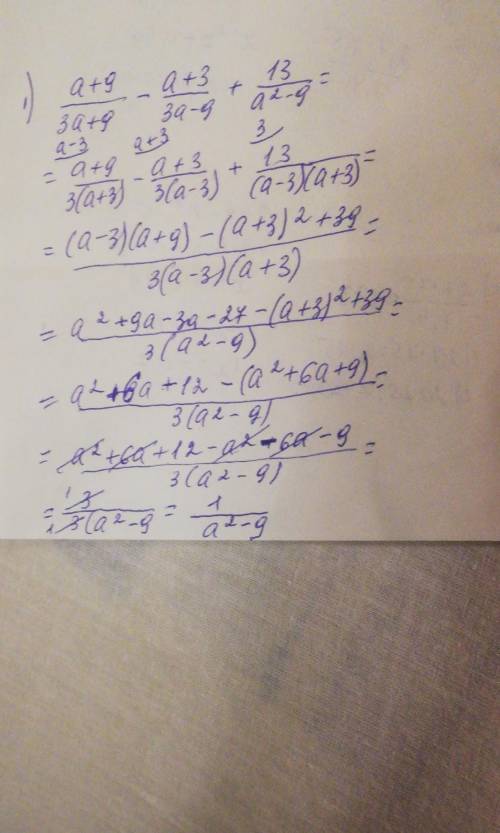 1) (a+9)/(3a+9) - (a+3)/(3a-9) + 13/(a²-9) =
a-3 a+3 3
= (a+9)/(3(a+3)) - (a+3)/(3(a-3)) + 13/((a-3)(a+3)) =
= ((a-3)(a+9) - (a+3)² + 39)/(3(a-3)(a+3)) =
= (a² + 9a - 3a - 27 - (a+3)² + 39)/(3(a²-9)) =
= (a² + 6a + 12 - (a² + 6a + 9))/(3(a²-9)) =
= (a² + 6a + 12 - a² - 6a - 9)/(3(a²-9)) =
= 3/(3(a²-9) = 1/(a²-9)